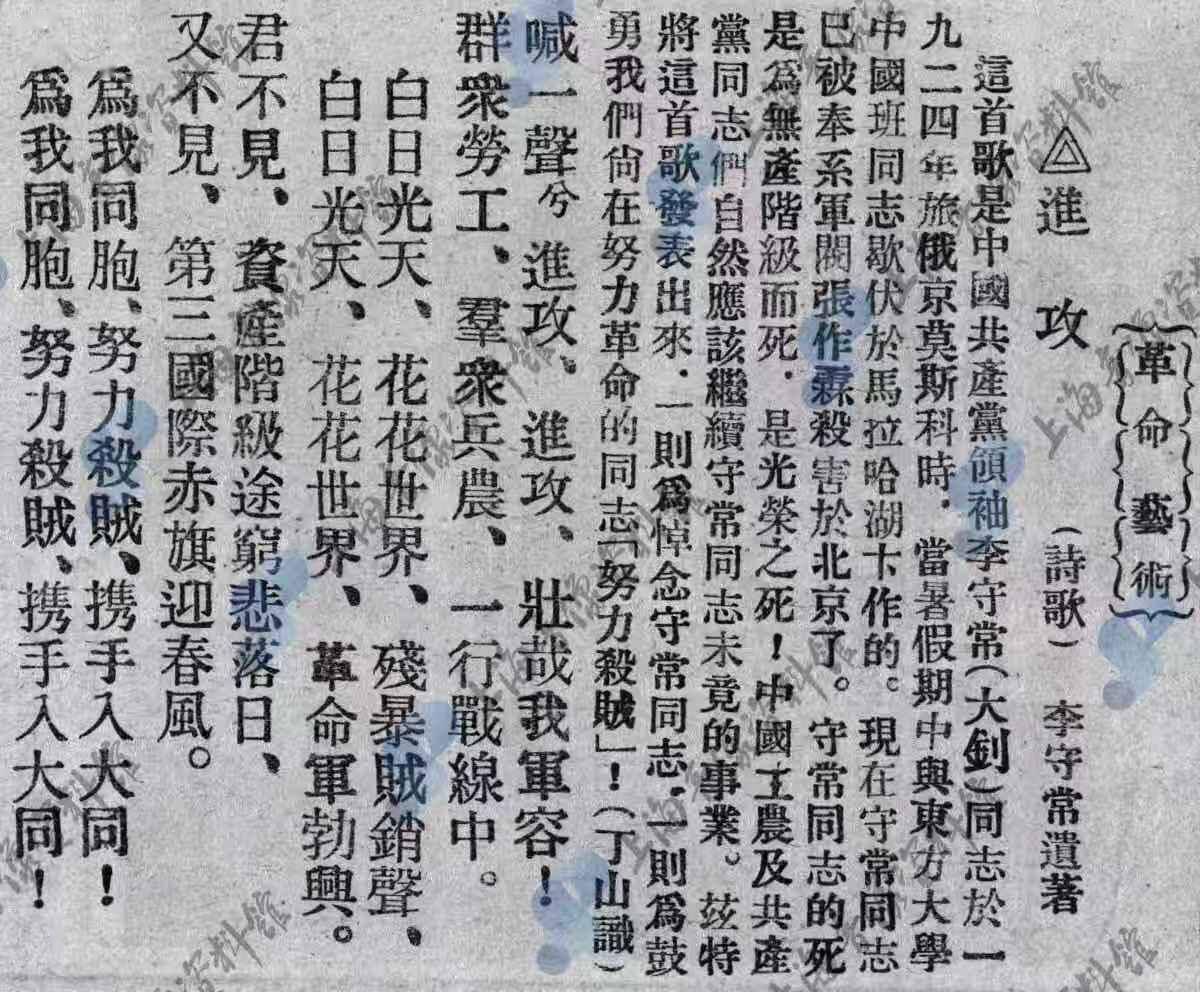 革命藝術
△進攻 (詩歌) 李守常遺著
這首歌是中國共產黨領袖李守常(大釗)同志於一
九二四年旅俄京莫斯科時，當暑假期中與東方大學
中國班同志歇伏於馬拉哈湖卡作的。現在守常同志
已被奉系軍閥張作霖殺害於北京了。守常同志的死
是爲無產階級而死，是光榮之死！中國工農及共產
黨同志們自然應該繼續守常同志未竟的事業。茲特
將這首歌發表出來，一則爲悼念守常同志，一則爲鼓
勇我們尙在努力革命的同志「努力殺賊」！(丁山識)
喊一聲兮、進攻、進攻、壯哉我軍容！
群衆勞工、羣衆兵農、一行戰線中。
白日光天、花花世界、殘暴賊銷聲、
白日光天、花花世界、革命軍勃興。
君不見、資產階級途窮悲落日、
又不見、第三國際赤旗迎春風。
爲我同胞、努力殺賊、携手入大同！
爲我同胞、努力殺賊、携手入大同！